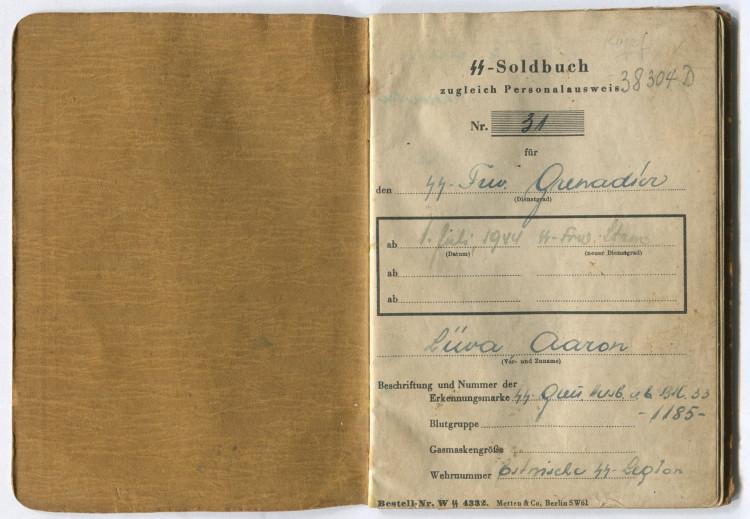 ϟϟ-Soldbuch
zugleich Personalausweis
38304 D
Nr. 31
für
den ϟϟ-Frw. Grenadier
(Dienstgrad)
ab 1. Juli 1944 ϟϟ-Frw.
(Datum) (neuer Dienstgrad)
ab
ab
Aaron
(Vor- und Zuname)
Beschriftung und Nummer der
Erkennungsmarke ϟϟ-Gren. Ausb. u. E. Btl. 33
-1185-
Blutgruppe
Gasmaskengröße
Wehrnummer Estnische ϟϟ-Legion
Bestell-Nr. W ϟϟ 4332. Metten & Co., Berlin SW61